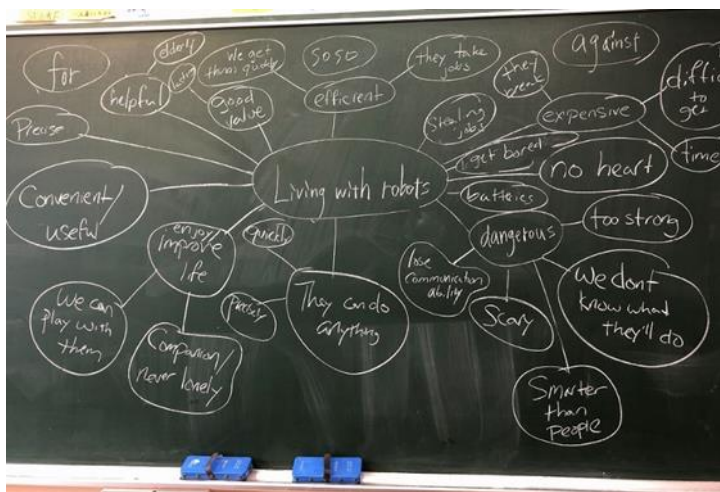 for
elderly
helpful
We get
them quickly
good
value
so so
efficient
they take
jobs
against
they
break
expensive
diffi
to
get
time
Precise
Stealing
jobs
get bored
no heart
Living with robots
batteries
Convenient/
useful
enjoy/
improve
life
quickly
dangerous
too strong
We can
play with
them
Companion/
never lonely
Precisely
They can do
anything
lose
communication
ability
Scary
We dont
know what
they'll do
Smarter
than
people